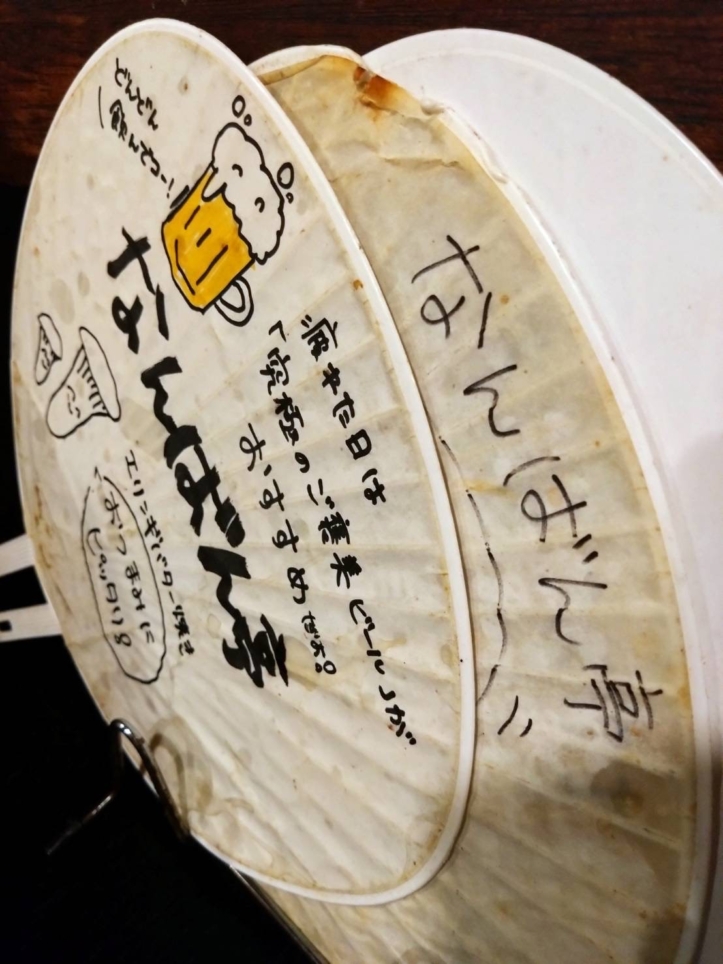 どんどん
飲んでつー!
疲れた日は
「究極のご褒美ビール」が
おすすめだよ。
なんばん亭
エリンギバター焼き
おつまみに
ピッタリ。
なんばん亭